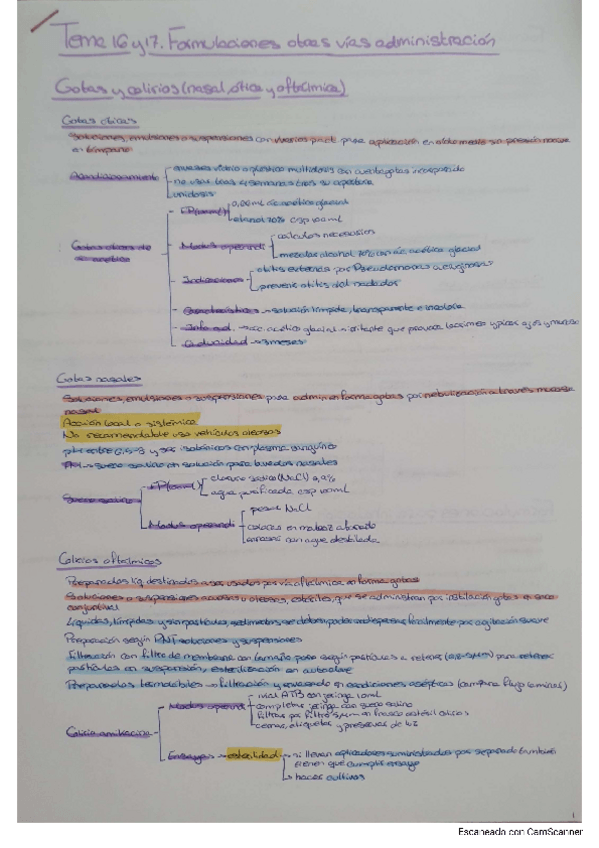 Tema 16 y 17. Formulaciones otras vías administración
Gotas y colirios (nasal, ótica y oftálmica)
Gotas óticas
Soluciones, emulsiones o suspensiones con uno o más p.a. para aplicación en
o tímpano
Acondicionamiento
envases vidrio o plástico multidosis con cuentagotas incorporado
no usar tras 4 semanas tras su apertura
unidosis
Gotas óticas de
ác. acético
ác. acético glacial
etanol 70% csp 100ml
Modus operandi
cálculos necesarios
mezclar alcohol 70% con ác. acético glacial
Indicaciones
otitis externa por Pseudomonas aeruginosa
prevenir otitis del nadador
Características → solución límpida, transparente e incolora
ác. acético glacial → irritante que provoca lacrimeo y picor ojos y mucosa
Caducidad → 3 meses
Gotas nasales
Soluciones, emulsiones o suspensiones para admin en forma gotas por nebulización a través mucosa
nasal
Acción local o sistémica
No recomendable uso vehículos oleosos
pH entre 6,5-8 y ser isotónicos con plasma sanguíneo
suero salino en solución para lavados nasales
Suero salino
cloruro sódico (NaCl) 0,9%
agua purificada csp 100ml
Modus operandi
pesar NaCl
colocar en matraz aforado
enrasar con agua destilada
Colirios oftálmicos
Preparados líq. destinados a ser usados por vía oftálmica en forma gotas
Soluciones o suspensiones acuosas u oleosas, estériles, que se administran por instilación gotas en saco
conjuntival
Líquidas, límpidas y sin partículas, sedimentos se deben poder redispersar fácilmente por agitación suave
Preparación según PNT soluciones y suspensiones
Filtración con filtro de membrana con tamaño poro según partículas a retener para retener
partículas en suspensión, esterilización en autoclave
Preparados termolábiles → filtración y envasado en condiciones asépticas (campana flujo laminar)
Colirio amikacina
Modus operandi
vial ATB con jeringa 10ml
completar jeringa con suero salino
filtrar por filtro en frasco estéril
cerrar, etiquetar y preservar de luz
Ensayos → esterilidad
si llevan aplicadores suministrados por separado también
tienen que cumplir ensayo
hacer cultivos
1
Escaneado con CamScanner